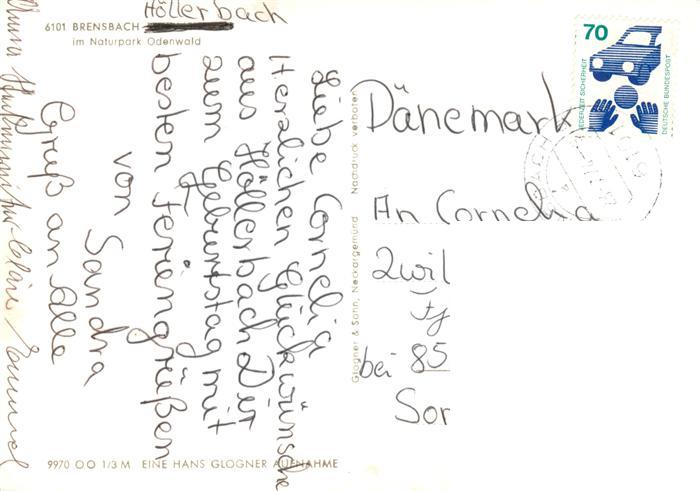 Höllerbach
6101 BRENSBACH
im Naturpark Odenwald
Liebe Cornelia
Herzlichen Glückwünsche
aus Höllerbach Dir
zum Geburtstag mit
besten Feriengrüßen
von Sandra
Gruß an alle
9970 OO 1/3 M EINE HANS GLOGNER AUFNAHME
Glogner & Sohn, Neckargemünd Nachdruck verboten
70
JEDERZEIT SICHERHEIT
DEUTSCHE BUNDESPOST
Dänemark
An Cornelia
2wil
bei 85
Sor